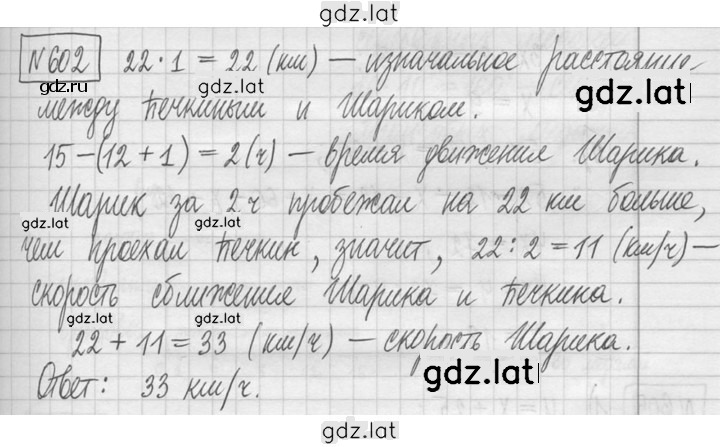 gdz.lat
№602 22·1 = 22 (км) — изначальное расстояние
gdz.ru
между Печкиным и Шариком.
gdz.lat
15-(12+1)=2(ч) — время движения Шарика.
Шарик за 2 ч пробежал на 22 км больше,
gdz.lat gdz.lat
чем проехал Печкин, значит, 22:2=11 (км/ч)—
скорость сближения Шарика и Печкина.
gdz.lat gdz.lat
22+11=33 (км/ч) — скорость Шарика.
gdz.lat
Ответ: 33 км/ч.
gdz.lat